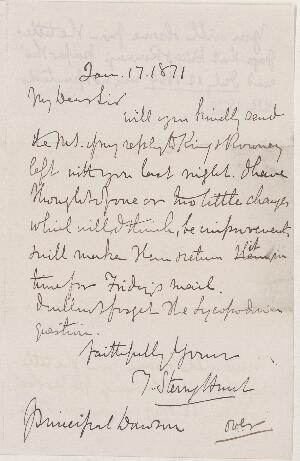 Jan. 17. 1871
My Dear Sir
will you kindly send
the M.S. of my reply to King & Rowney
left with you last night. I have
thought of one or two little changes
which will, I think, be improvements
& will make them & return it in
time for Friday's mail.
I will not forget the Lycopodium
question.
Faithfully Yours
T. Sterry Hunt
Principal Dawson
over